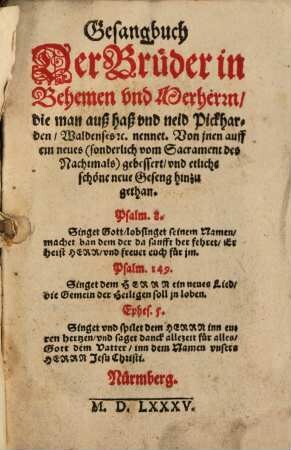 Gesangbuch
Der Brüder in
Behemen vnd Merherrn/
die man auß haß vnd neid Pickhar-
den/ Waldenses ꝛc. nennet. Von jnen auff
ein neues (sonderlich vom Sacrament des
Nachtmals) gebessert/ vnd etliche
schöne neue Geseng hinzu
gethan.
Psalm. 8.
Singet Gott/ lobsinget seinem Namen/
machet ban dem der da sanfft her fehret/ Er
heist HERR/ vnd freuet euch für jm.
Psalm. 149.
Singet dem HERRN ein neues Lied/
die Gemein der Heiligen soll jn loben.
Ephes. 5.
Singet vnd spilet dem HERRN inn eu-
ren hertzen/ vnd saget danck allezeit für alles/
Gott dem Vatter/ inn dem Namen vnsers
HERRN Jesu Christi.
Nürmberg.
M. D. LXXXV.